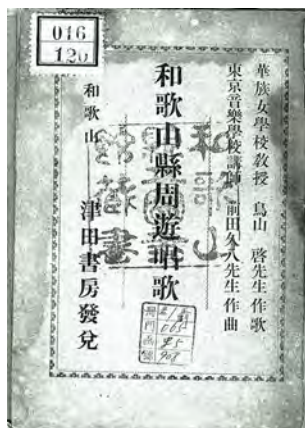 016
120
華族女學校敎授 鳥山 啓先生作歌
東京音樂學校講師 前田久八先生作曲
和歌山縣周遊唱歌
和歌山 津田書房發兌